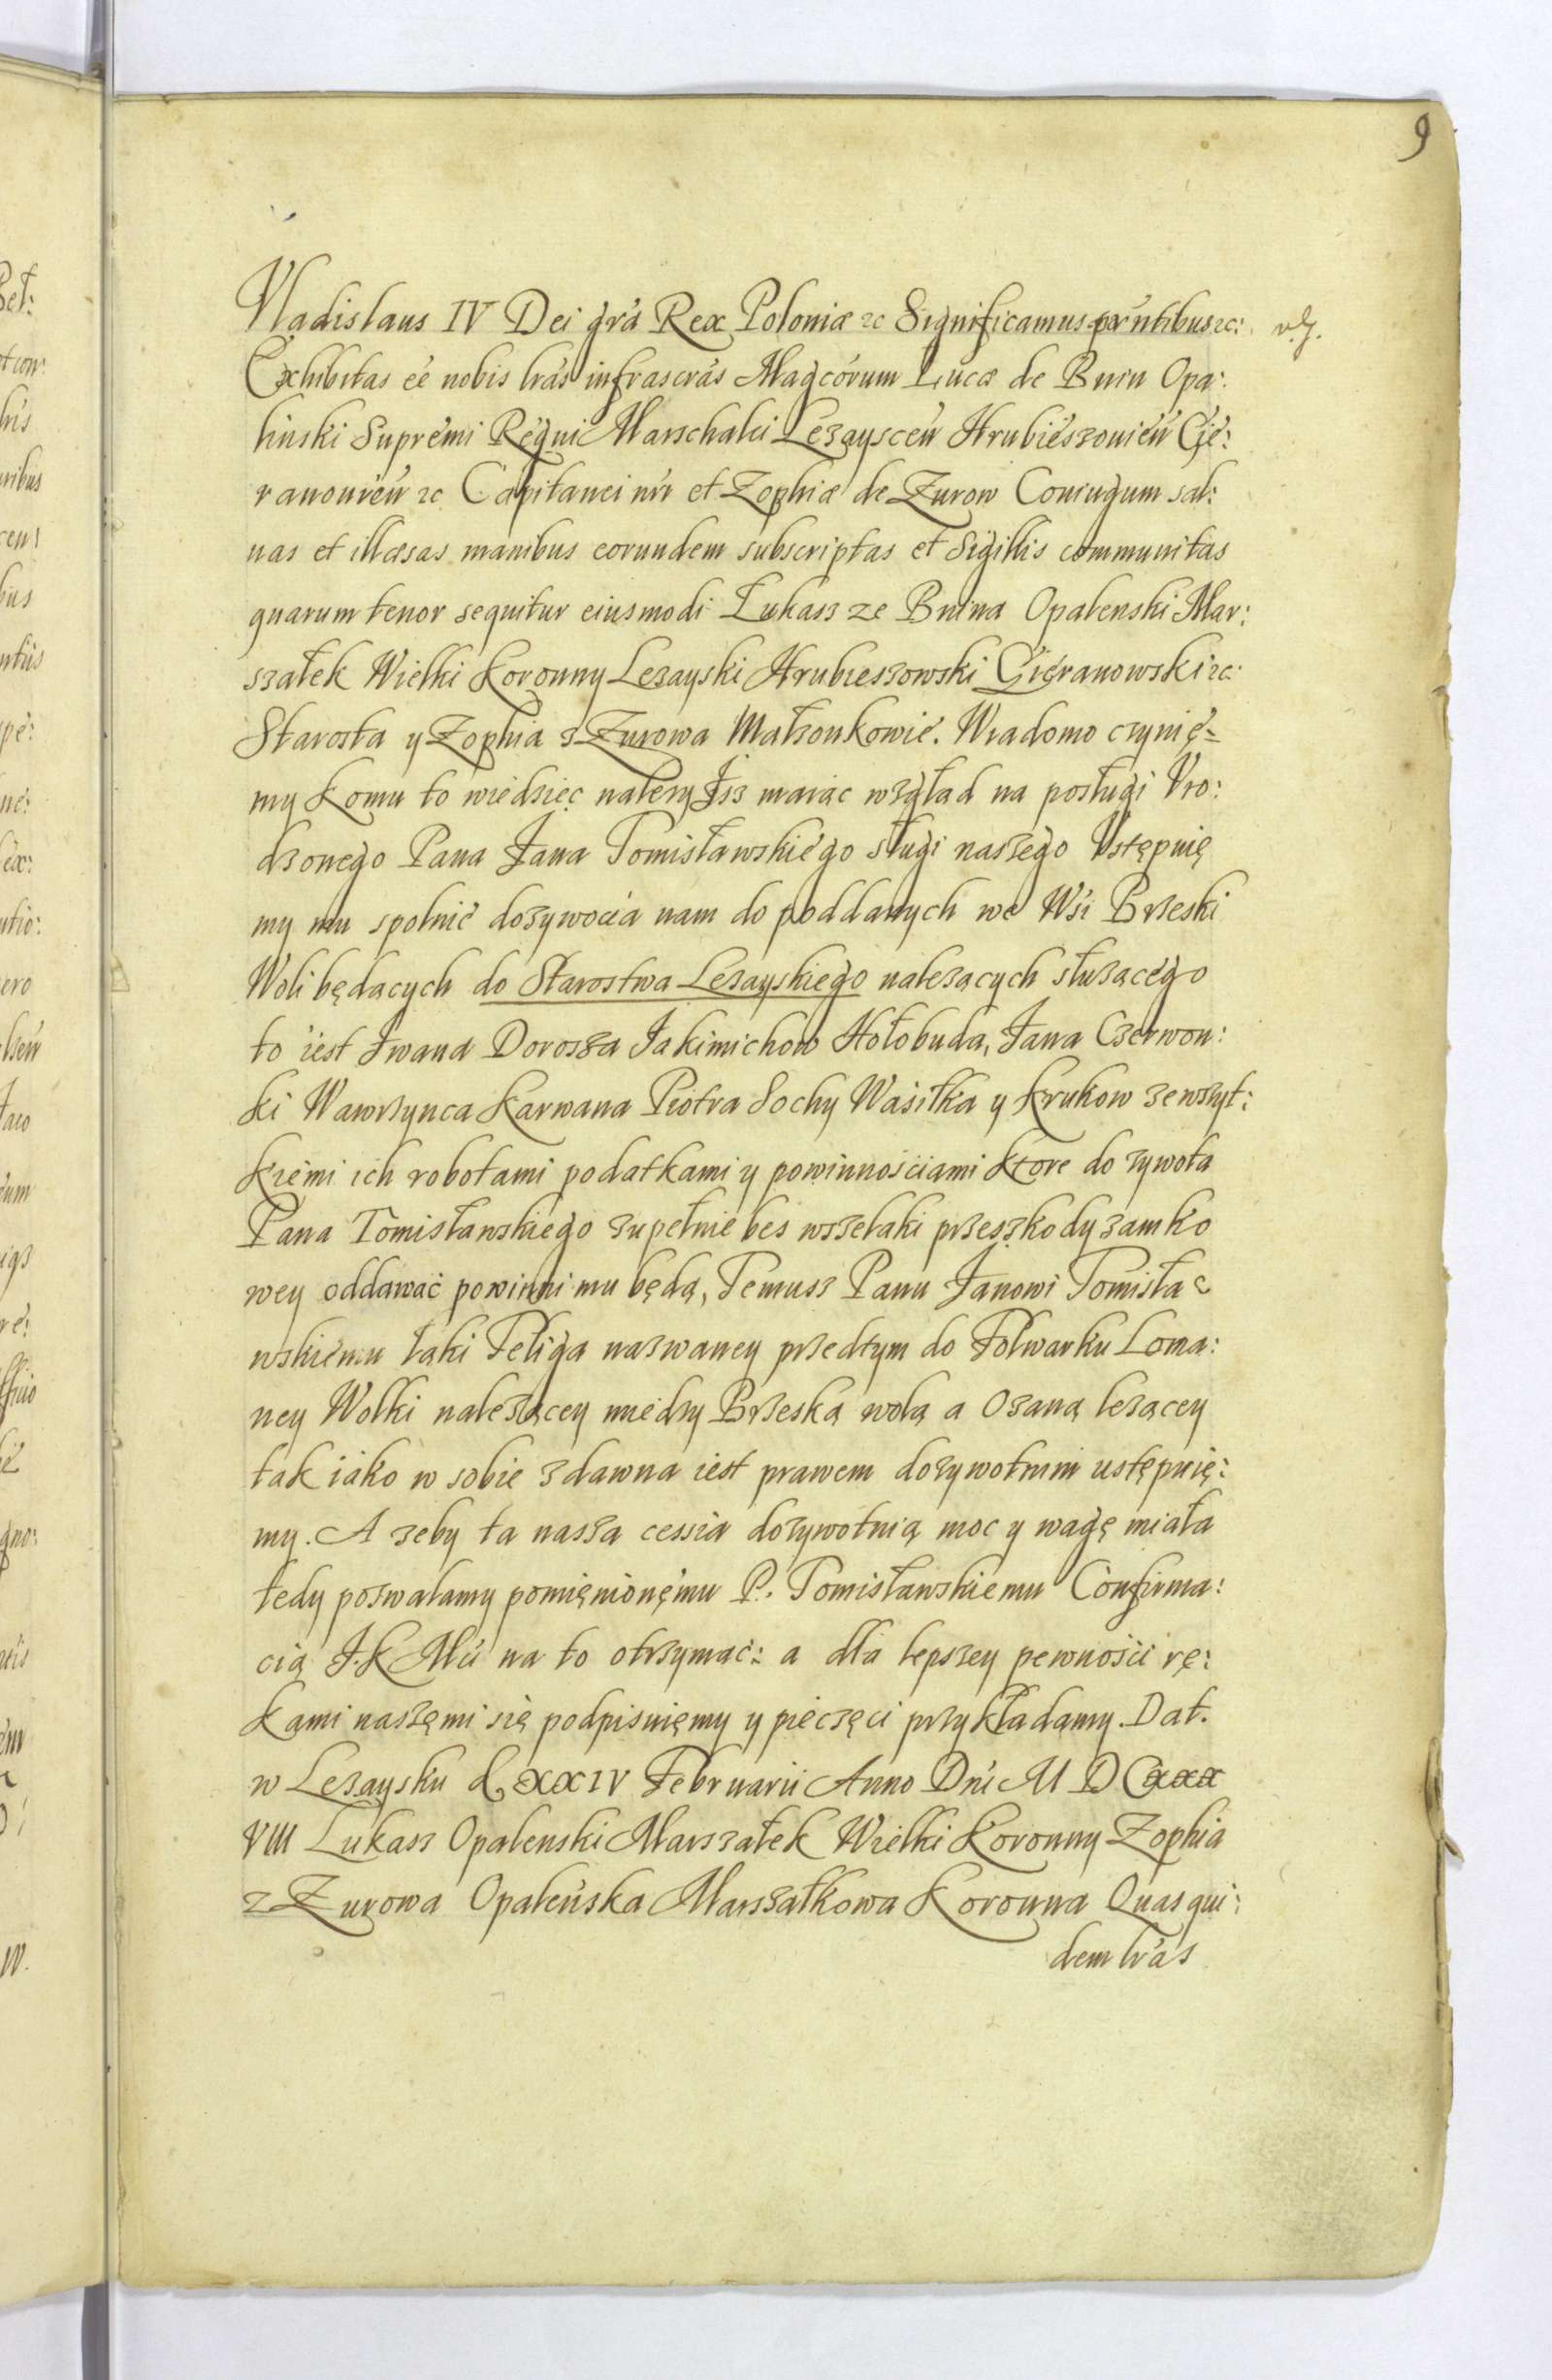 9
Vladislaus IV Dei grã Rex Poloniæ &c Significamus pñtibus &c:
Exhibitas eẽ nobis lrãs infrascrãs Magcórum Lucæ de Bnin Opa:
linski Supremi Regni Marschalci Lezayscen̄ Hrubieszovien̄ Gie:
ranovien̄ &c Capitanei nrĩ et Zophiæ de Zurow Coniugum sal:
uas et illæsas manibus eorundem subscriptas et Sigillis communitas
quarum tenor sequitur eiusmodi Łukasz ze Bnina Opalenski Mar:
szałek Wielki Koronny Lezayski Hrubieszowski Gieranowski &c:
Starosta y Zophia z Zurowa Małzonkowie. Wiadomo czynię=
my komu to wiedziec nalezy Jsz maiąc wzgłąd na posługi Vro:
dzonego Pana Jana Tomisławskiego sługi naszego Vstępuię
my mu spolnie dozywocia nam do poddanych we Wsi Brzeski
Woli będących do Starostwa Lezayskiego nalezących słuzącego
to iest Jwana Dorosza Jakimichow Hołobuda, Jana Czerwon:
ki Wawrzynca Karwana Piotra Sochy Wasiłka y Krukow zewszyt:
kiemi ich robotami podatkami y powinnosciami ktore do zywota
Pana Tomisławskiego zupełnie bes wszelaki przeszkody zamko
wey oddawać powinni mu będą, Temusz Panu Janowi Tomisła=
wskiemu łąki Feliga nazwaney przedtym do Folwarku Loma:
ney Wolki nalezącey miedzy Brzeską wolą a Ozaną lezącey
tak iako w sobie zdawna iest prawem dozywotnim ustępuię:
my. A zeby ta nasza cessia dozywotnią moc y wagę miała
tedy pozwalamy pomięnionęmu P. Tomisławskiemu Confirma:
cią J.K Mći na to otrzymać: a dla lepszey pewności rę:
kami naszęmi się podpisuięmy y pieczęci przykładamy. Dat.
w Lezaysku d. XXIV Februarii Anno Dnĩ M D CXXX
VIII Lukasz Opalenski Marszałek Wielki Koronny Zophia
z Zurowa Opaleńska Marszałkowa Koronna Quas qui:
dem lrãs